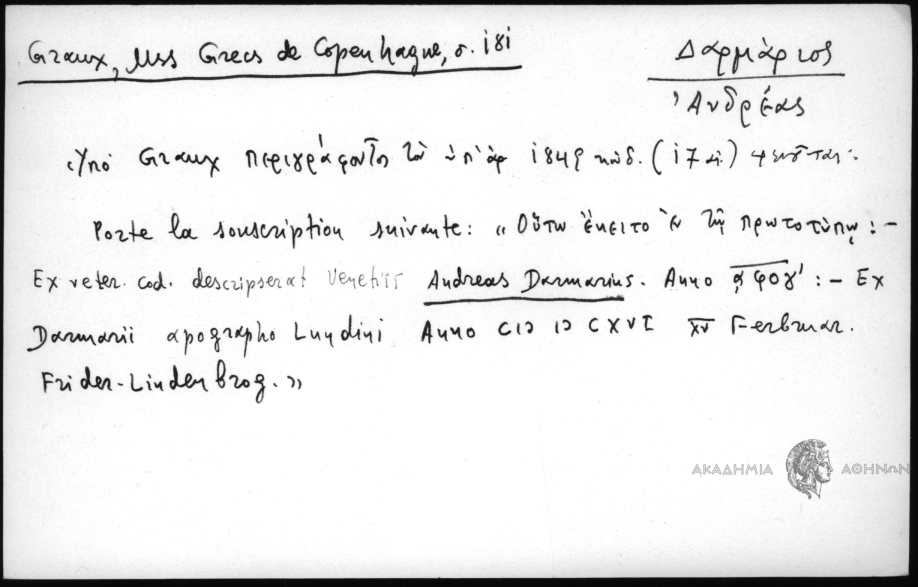 Graux, Mss Grecs de Copenhague, σ. 181
Δαρμάριος
Ἀνδρέας
Ὑπὸ Graux περιγράφοντος τὸν ὑπ' ἀρ 1849 κώδ. (17 αἰ.)
Porte la souscription suivante: « Οὕτω ἔκειτο ἐν τῷ πρωτοτύπῳ : –
Ex veter. cod. descripserat Venetiis Andreas Darmarius. Anno ͵αφογ' : – Ex
Darmarii apographo Lundini Anno CIↃ IↃ CXVI XV Februar.
Frider-Lindenbrog. »
ΑΚΑΔΗΜΙΑ ΑΘΗΝΩΝ